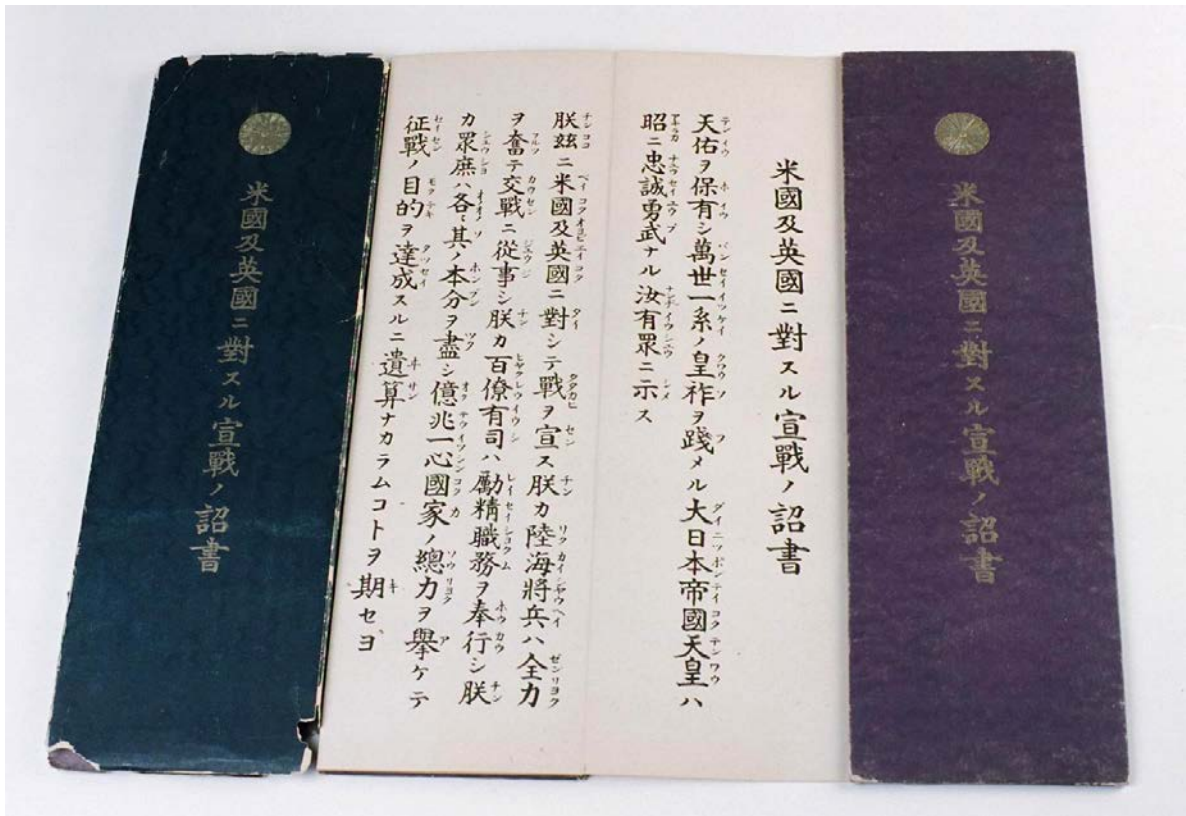 米國及英國ニ對スル宣戰ノ詔書
米國及英國ニ對スル宣戰ノ詔書
天佑ヲ保有シ萬世一系ノ皇祚ヲ踐メル大日本帝國天皇ハ
昭ニ忠誠勇武ナル汝有眾ニ示ス
朕玆ニ米國及英國ニ對シテ戰ヲ宣ス朕カ陸海將兵ハ全力
ヲ奮テ交戰ニ從事シ朕カ百僚有司ハ勵精職務ヲ奉行シ朕
カ眾庶ハ各〻其ノ本分ヲ盡シ億兆一心國家ノ總力ヲ擧ケテ
征戰ノ目的ヲ達成スルニ遺算ナカラムコトヲ期セヨ
米國及英國ニ對スル宣戰ノ詔書